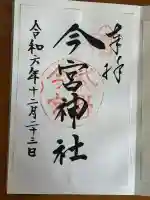 奉拝
今宮神社
令和六年十二月二十三日